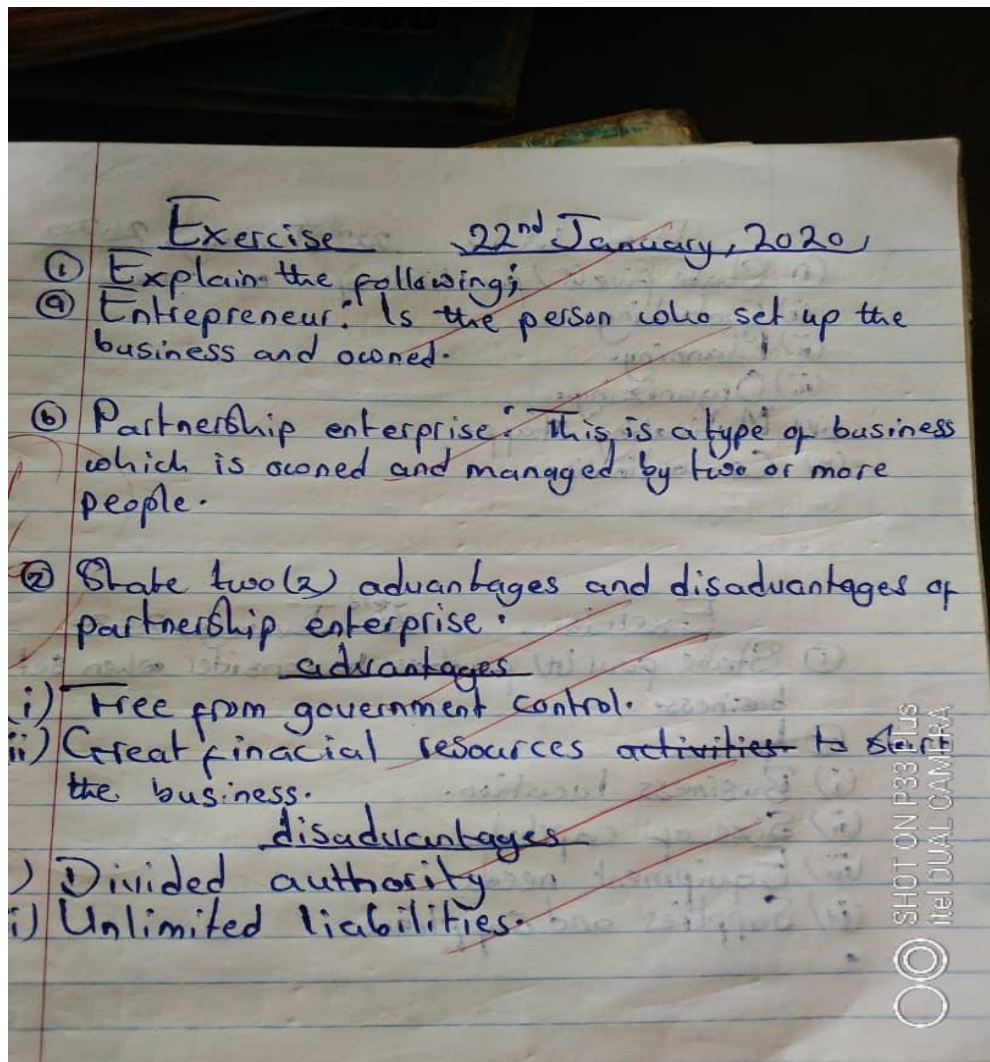 Exercise 22nd January, 2020
① Explain the following;
ⓐ Entrepreneur: Is the person who set up the
business and owned.
ⓑ Partnership enterprise: This is a type of business
which is owned and managed by two or more
people.
② State two(2) advantages and disadvantages of
partnership enterprise.
advantages
i) Free from government control.
ii) Great finacial resources activities to start
the business.
disadvantages
) Divided authority
i) Unlimited liabilities.
SHOT ON P33 Plus
itel DUAL CAMERA